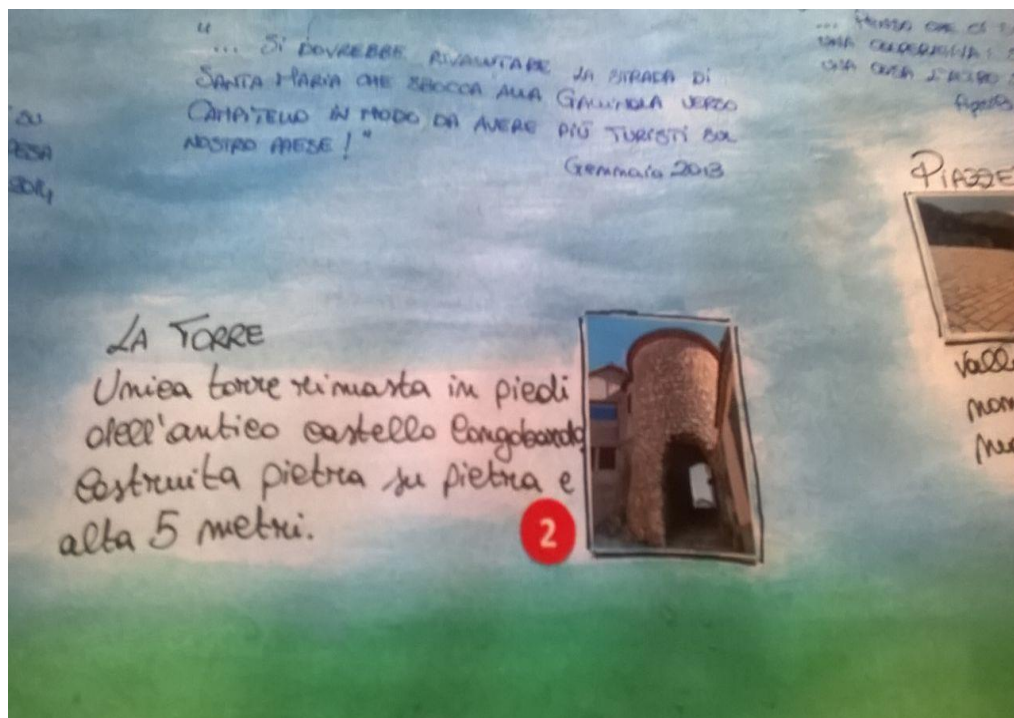 "... SI DOVREBBE RIVALUTARE LA STRADA DI
SANTA MARIA CHE SBOCCA ALLA GALLINOLA VERSO
CAMPITELLO IN MODO DA AVERE PIÙ TURISTI SUL
NOSTRO PAESE!"
Gennaio 2013
SU
2014
PIAZZE
LA TORRE
Unica torre rimasta in piedi
dell'antico castello longobardo
Costruita pietra su pietra e
alta 5 metri.
2